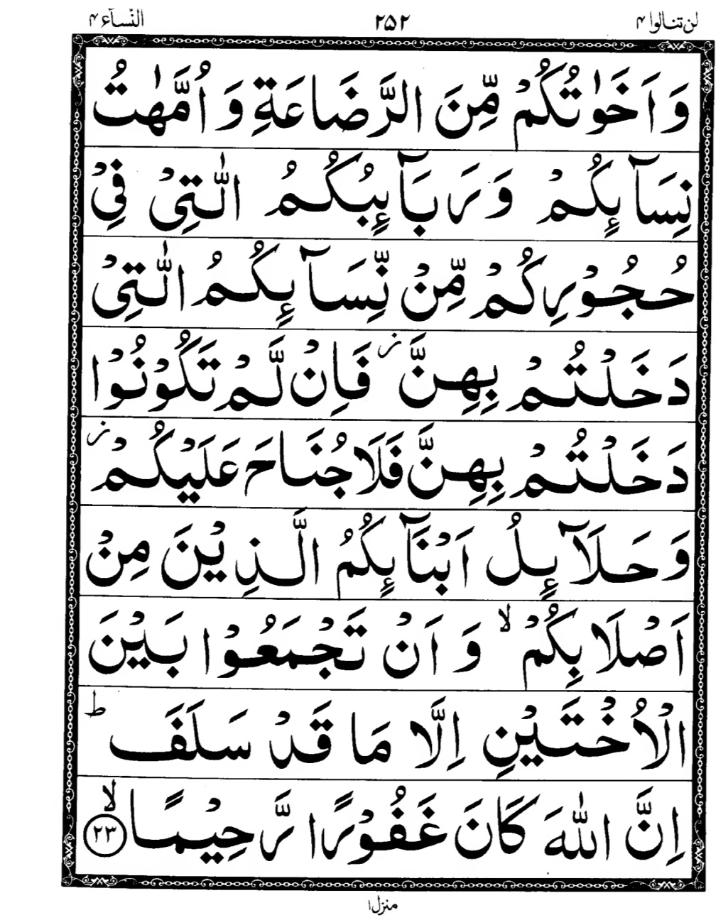 لن تنالوا ۴ ۲۵۲ النسآء ۴
وَاَخَوٰتُكُمْ مِّنَ الرَّضَاعَةِ وَ اُمَّهٰتُ
نِسَآئِكُمْ وَرَبَآئِبُكُمُ الّٰتِیْ فِیْ
حُجُوْرِكُمْ مِّنْ نِّسَآئِكُمُ الّٰتِیْ
دَخَلْتُمْ بِهِنَّ ز فَاِنْ لَّمْ تَكُوْنُوْا
دَخَلْتُمْ بِهِنَّ فَلَا جُنَاحَ عَلَیْكُمْ ز
وَحَلَآئِلُ اَبْنَآئِكُمُ الَّذِیْنَ مِنْ
اَصْلَابِكُمْ ۙ وَ اَنْ تَجْمَعُوْا بَیْنَ
الْاُخْتَیْنِ اِلَّا مَا قَدْ سَلَفَ ؕ
اِنَّ اللّٰهَ كَانَ غَفُوْرًا رَّحِیْمًا ۙ ۲۳
منزل۱